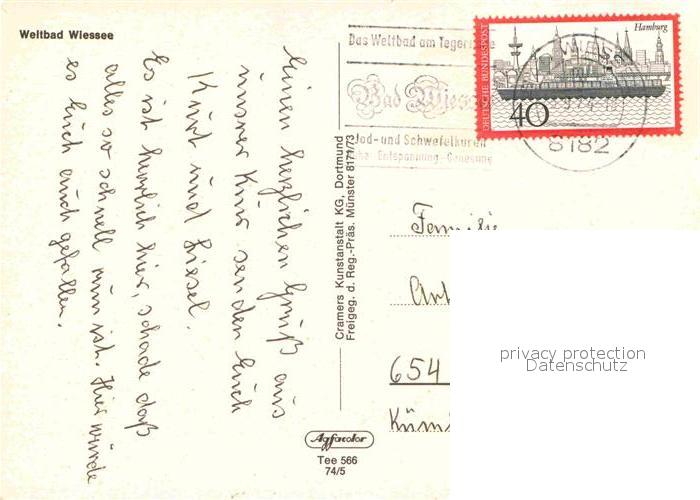 Weltbad Wiessee
Einen herzlichen Gruß aus
unsrer Kur senden Euch
Kurt und Liesel.
Es ist herrlich hier, schade daß
alles so schnell rum ist. Hier würde
es Euch auch gefallen.
Cramers Kunstanstalt KG, Dortmund
Freigeg. d. Reg.-Präs. Münster 8171/73
Agfacolor
Tee 566
74/5
Das Weltbad am Tegernsee
Bad Wiessee
Jod- und Schwefelkuren
Entspannung - Genesung
DEUTSCHE BUNDESPOST
Hamburg
40
8182
Familie
654
privacy protection
Datenschutz